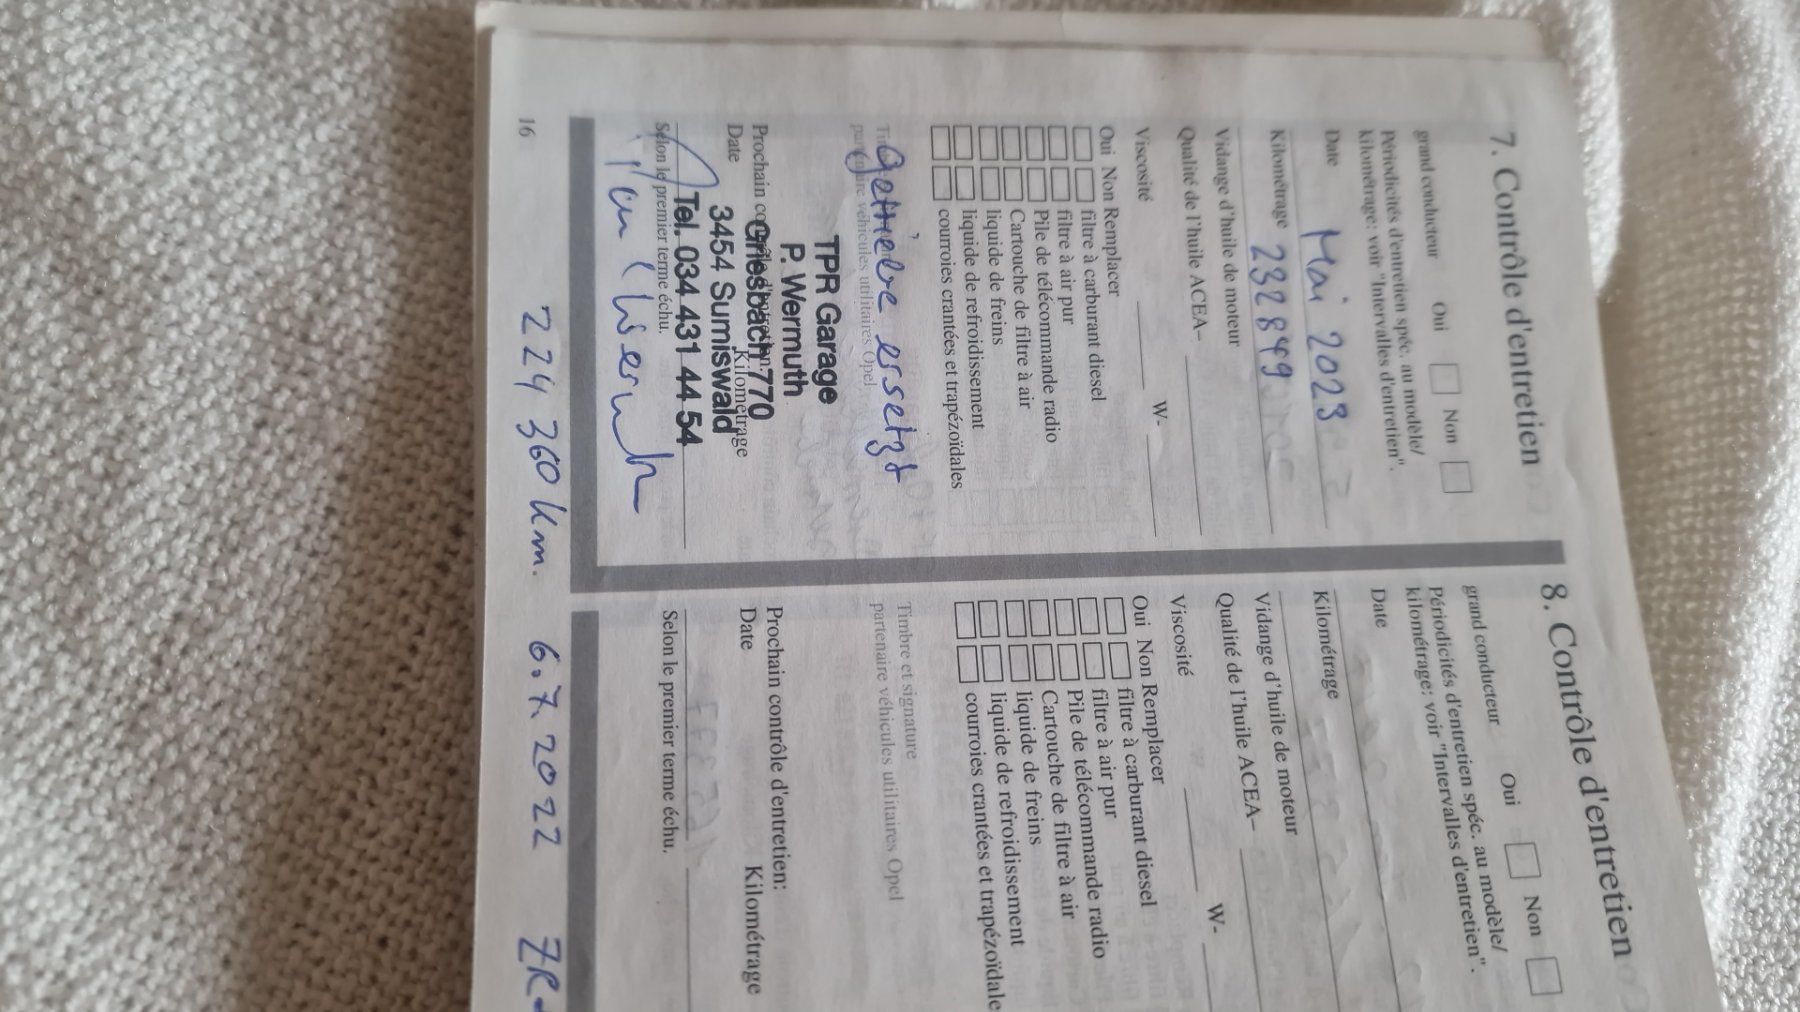 7. Contrôle d'entretien
grand conducteur Oui Non
Périodicités d'entretien spéc. au modèle/
kilométrage: voir "Intervalles d'entretien".
Date Mai 2023
Kilométrage 232849
Vidange d'huile de moteur
Qualité de l'huile ACEA–
Viscosité W-
Oui Non Remplacer
filtre à carburant diesel
filtre à air pur
Pile de télécommande radio
Cartouche de filtre à air
liquide de freins
liquide de refroidissement
courroies crantées et trapézoïdales
ersetzt
partenaire véhicules utilitaires Opel
TPR Garage
P. Wermuth
Griesbach 770
3454 Sumiswald
Tel. 034 431 44 54
Prochain
Date Kilométrage
Selon le premier terme échu.
16
224 360 km. 6.7.2022
8. Contrôle d'entretien
grand conducteur Oui Non
Périodicités d'entretien spéc. au modèle/
kilométrage: voir "Intervalles d'entretien".
Date
Kilométrage
Vidange d'huile de moteur
Qualité de l'huile ACEA–
Viscosité W-
Oui Non Remplacer
filtre à carburant diesel
filtre à air pur
Pile de télécommande radio
Cartouche de filtre à air
liquide de freins
liquide de refroidissement
courroies crantées et trapézoïdale
Timbre et signature
partenaire véhicules utilitaires Opel
Prochain contrôle d'entretien:
Date Kilométrage
Selon le premier terme échu.